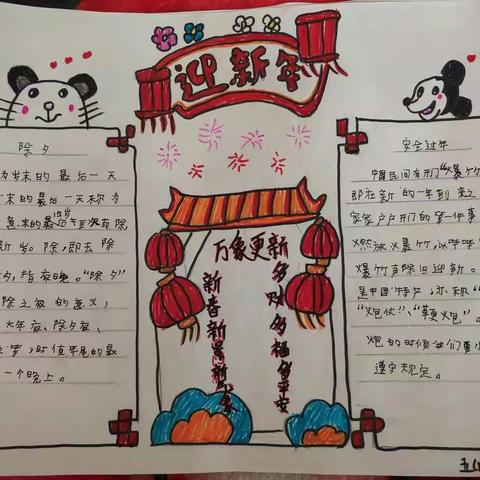 迎新年
除夕
为岁末的最后一天
末的最后一天称为
意末的最后
新岁。除,即去除
夕,指夜晚。“除夕”
除之夜的意义,
大年夜、除夕夜、
等,时值年尾的最
一个晚上。
万象更新
新春新景新
多财多福多平安
安全过年
中国民间有开门爆竹
即在新的一年到来之
家家户户开门的第一件事
燃放爆竹,以哔哔
爆竹声除旧迎新。
是中国特产,亦称“
“炮仗”、“鞭炮”。
炮的时候我们要
遵守规定。